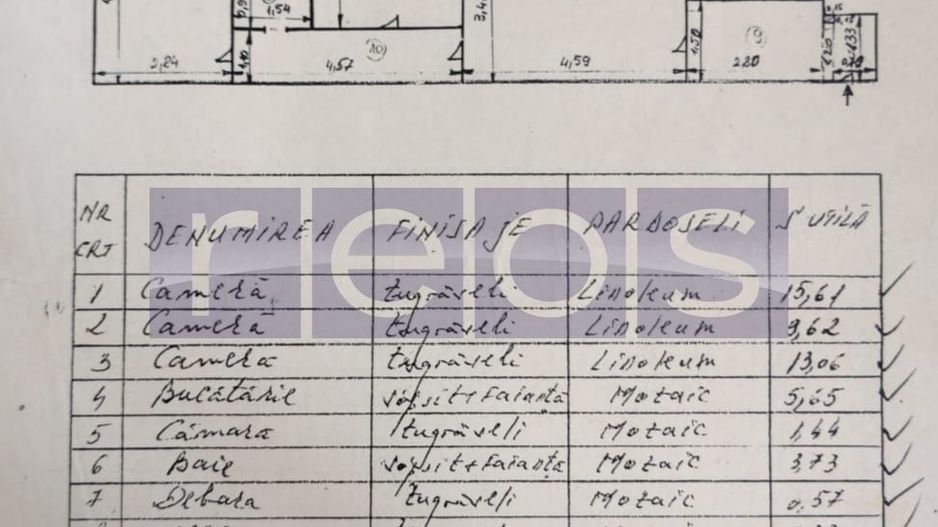 1,54
10
2,24
1,10
4,57
4,59
1,50
9
220
NR CRT DENUMIREA FINISAJE PARDOSELI S UTILĂ
reos
1 Cameră zugrăveli Linoleum 15,61
2 Cameră zugrăveli Linoleum 9,62
3 Camera zugrăveli Linoleum 13,06
4 Bucătărie vopsit+faianță Mozaic 5,65
5 Cămara zugrăveli Mozaic 1,44
6 Baie vopsit+faianța Mozaic 3,73
7 Debara zugrăveli Mozaic 0,57